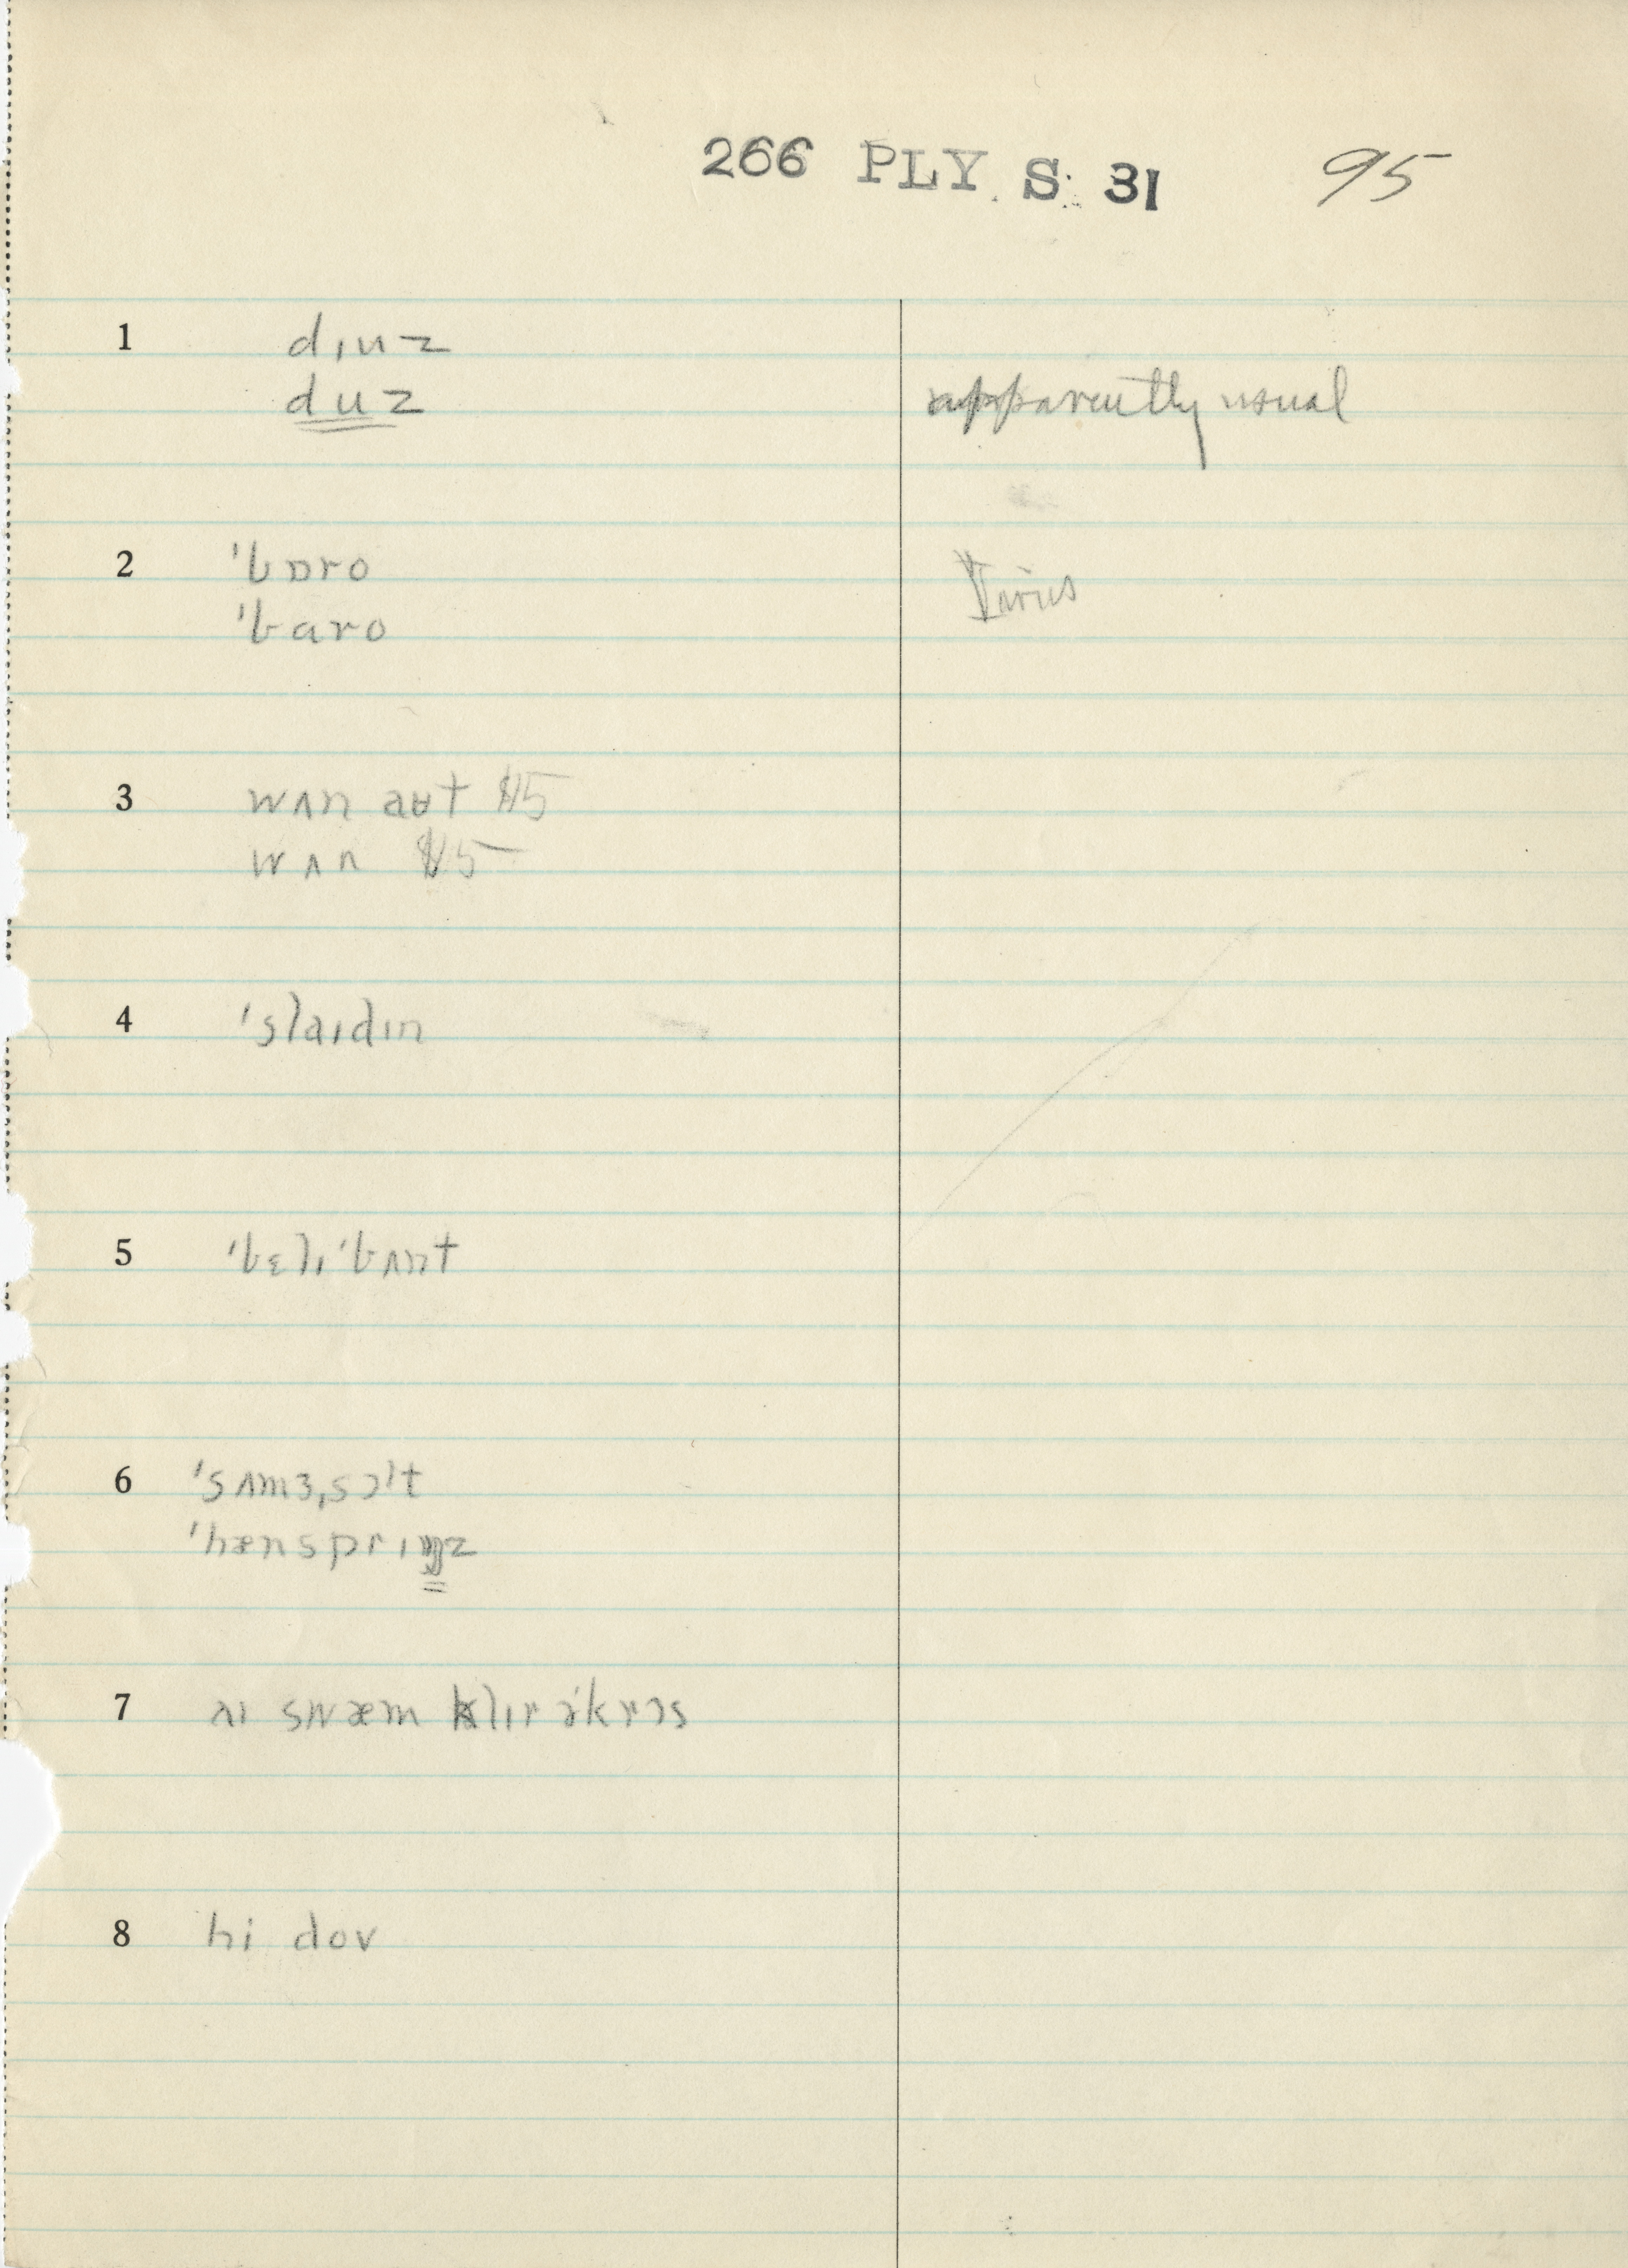 266 PLY. S. 31 95
1 dɪuz
duz apparently usual
2 ˈbɒro
ˈbaro Varies
3 wʌn aʊt $15
wʌn $15
4 ˈslaɪdɪn
5 ˈbɛlɪˈbʌnt
6 ˈsʌmɜˌsɔlt
ˈhænsprɪŋz
7 aɪ swæm klɪr əˈkrɔs
8 hi dov